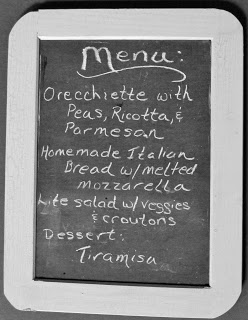 Menu:
Orecchiette with
Peas, Ricotta, &
Parmesan
Homemade Italian
Bread w/ melted
mozzarella
Lite salad w/ veggies
& croutons
Dessert:
Tiramisa